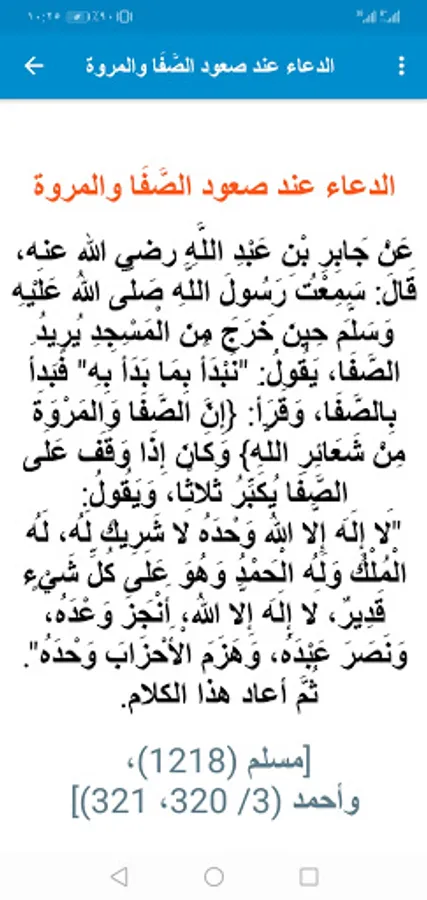 ١٠:٢٥ ٪٩٠
الدعاء عند صعود الصَّفَا والمروة
الدعاء عند صعود الصَّفَا والمروة
عَنْ جَابِرِ بْنِ عَبْدِ اللَّهِ رضي الله عنه،
قَالَ: سَمِعْتُ رَسُولَ اللهِ صَلَّى اللهُ عَلَيْهِ
وَسَلَّمَ حِينَ خَرَجَ مِنَ الْمَسْجِدِ يُرِيدُ
الصَّفَا، يَقُولُ: "نَبْدَأُ بِمَا بَدَأَ بِهِ" فَبَدأَ
بِالصَّفَا، وَقَرَأَ: {إِنَّ الصَّفَا وَالمَرْوَةَ
مِنْ شَعَائِرِ اللهِ} وَكَانَ إِذَا وَقَفَ عَلَى
الصَّفَا يُكَبِّرُ ثَلاثًا، وَيَقُولُ:
"لَا إِلَهَ إِلا اللهُ وَحْدَهُ لا شَرِيكَ لَهُ، لَهُ
الْمُلْكُ وَلَهُ الْحَمْدُ وَهُوَ عَلَى كُلِّ شَيْءٍ
قَدِيرٌ، لا إِلَهَ إلا اللهُ، أَنْجَزَ وَعْدَهُ،
وَنَصَرَ عَبْدَهُ، وَهَزَمَ الْأَحْزَابَ وَحْدَهُ".
ثُمَّ أعاد هذا الكلام.
[مسلم (1218)،
وأحمد (3/ 320، 321)]